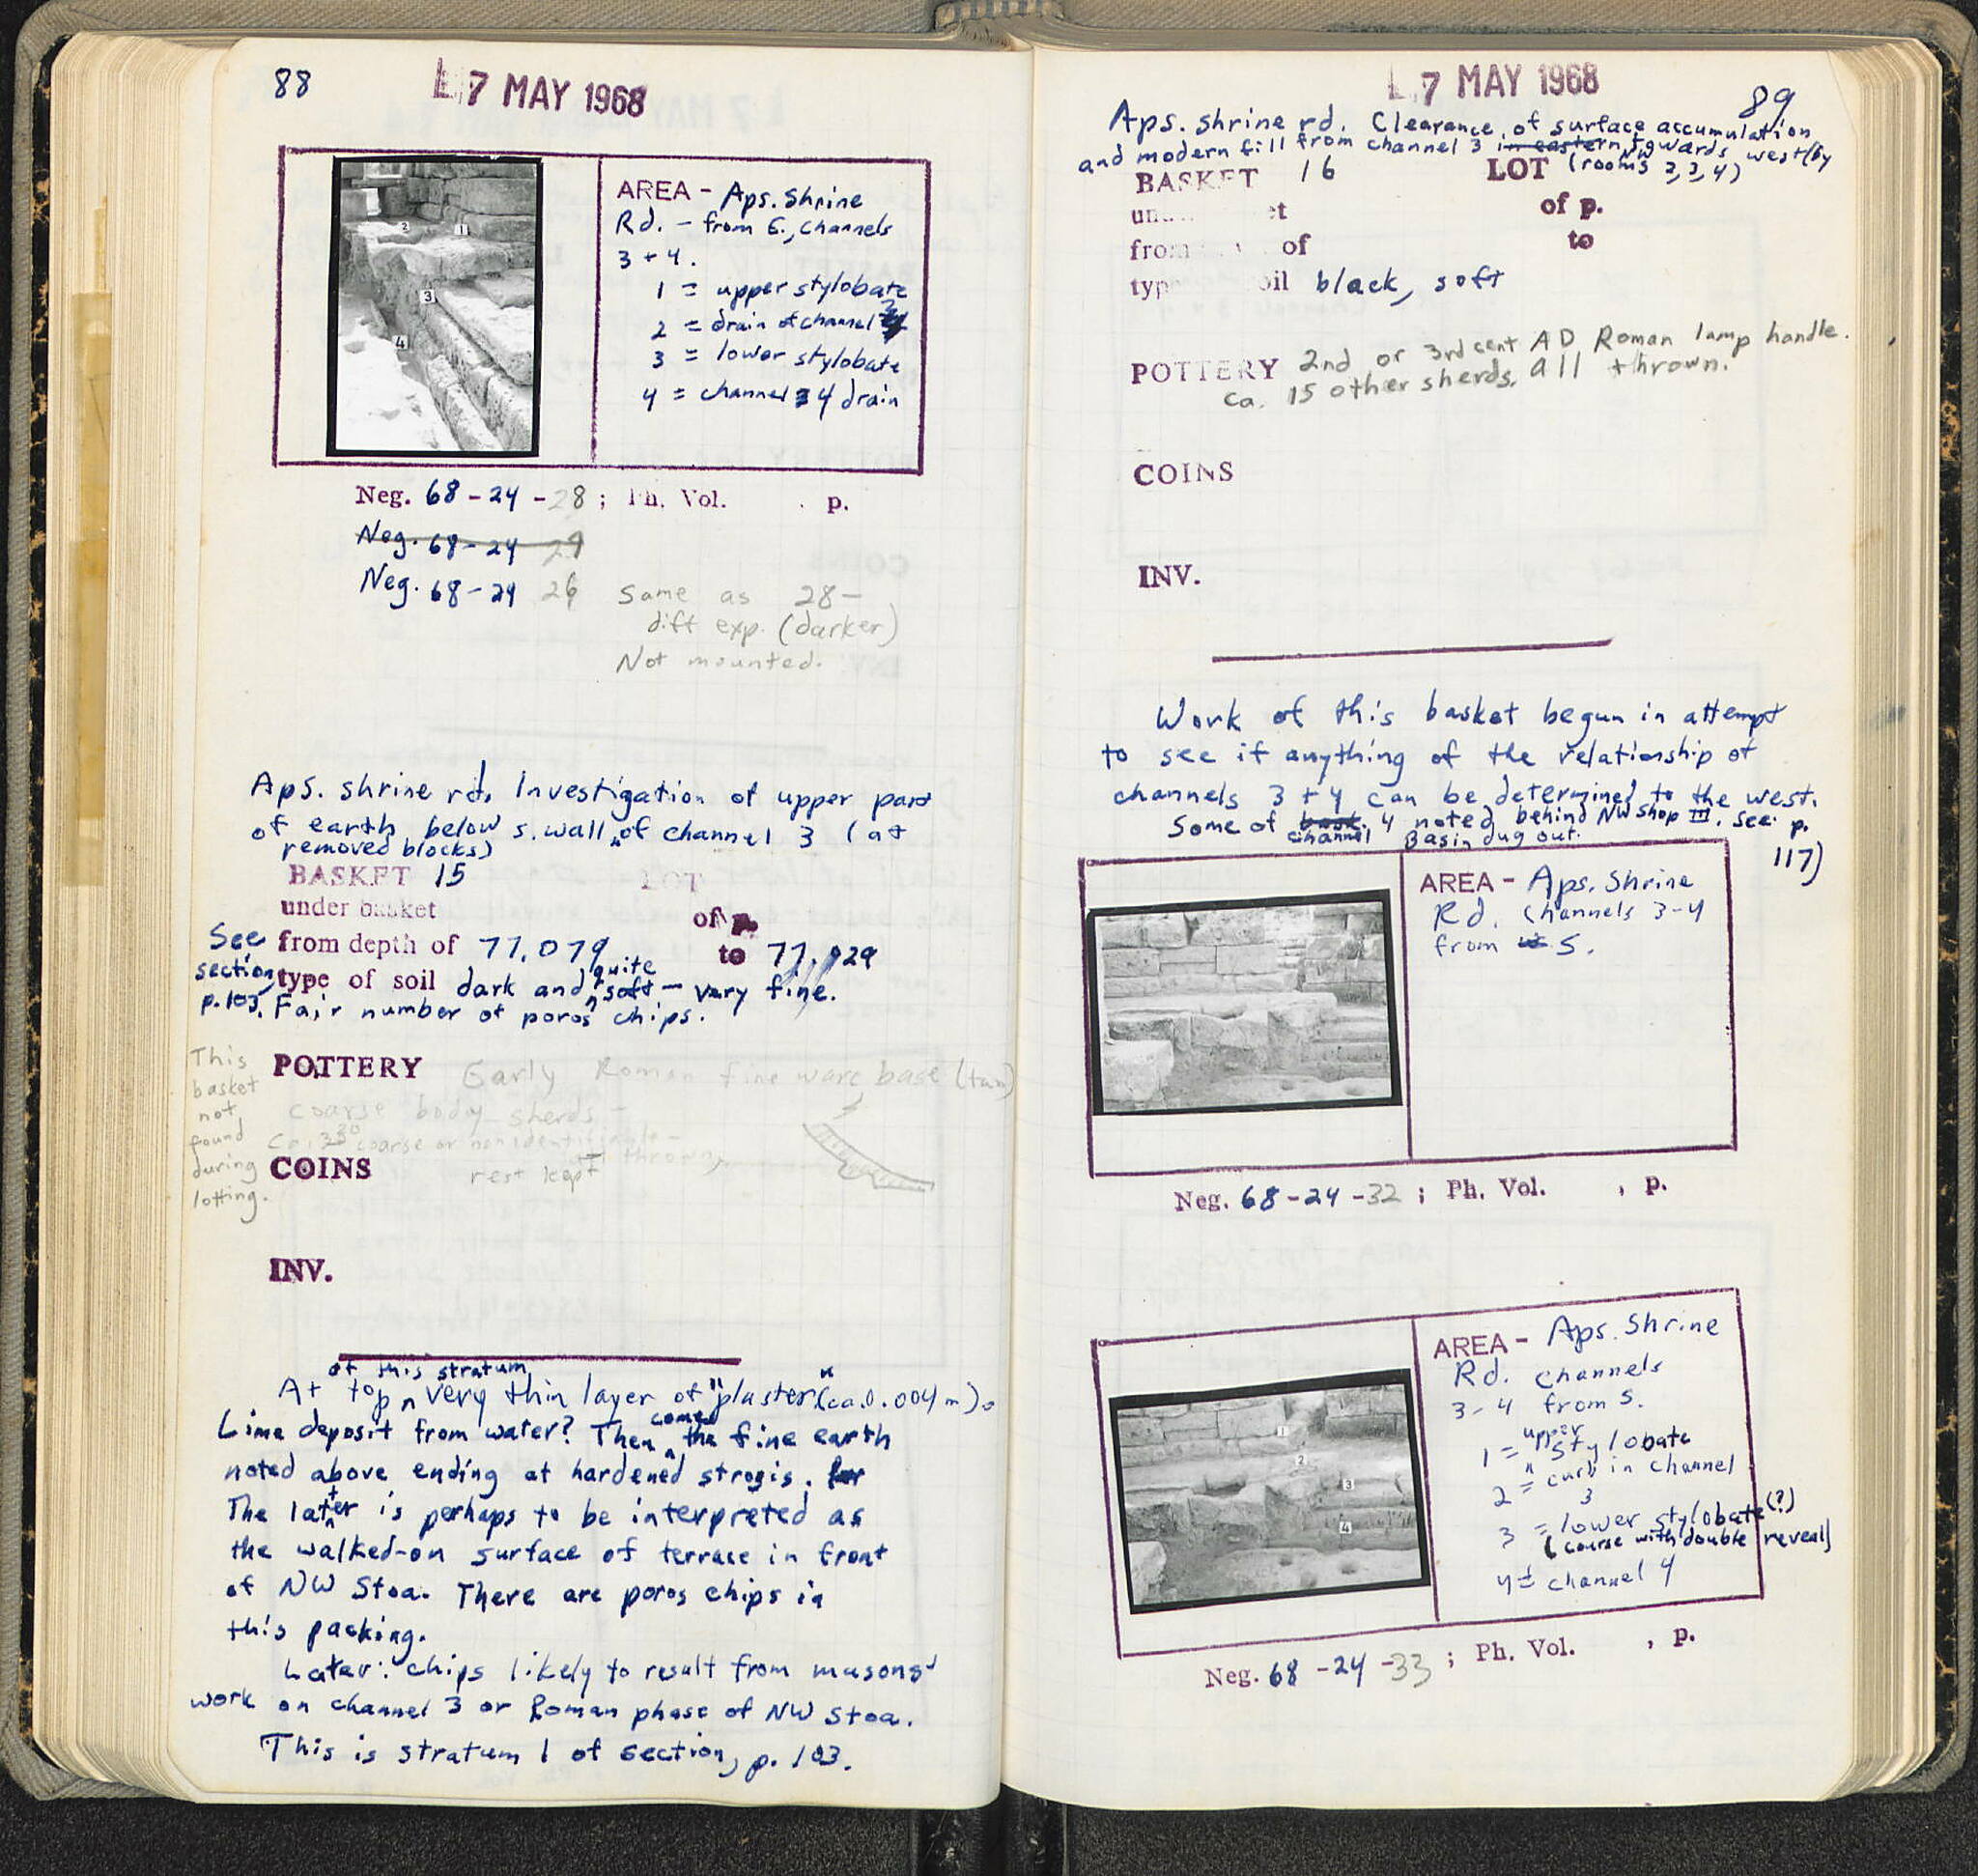 88
L 7 MAY 1968
AREA - Aps. Shrine
Rd. - from E., channels
3 + 4.
1 = upper stylobate
2 = drain of channel 3
3 = lower stylobate
4 = channel 4 drain
2
1
3
4
Neg. 68-24-28; Ph. Vol. p.
Neg. 68-24 29
Neg. 68-24 26
Same as 28-
diff exp. (darker)
Not mounted.
Aps. shrine rd, Investigation of upper part
of earth below s. wall of channel 3 (at
removed blocks)
BASKET 15 LOT
under basket of p.
See
section,
p. 103.
from depth of 77.079 to 77.029
type of soil dark and quite soft - very fine.
Fair number of poros chips.
This
basket
not
found
during
lotting.
POTTERY Early Roman fine ware base (tan)
coarse body sherds -
coarse or non identifiable -
all thrown,
rest kept
COINS
INV.
At top of this stratum very thin layer of "plaster" (ca. 0.004 m).
Lime deposit from water? Then comes the fine earth
noted above ending at hardened strosis.
The latter is perhaps to be interpreted as
the walked-on surface of terrace in front
of NW Stoa. There are poros chips in
this packing.
Later: chips likely to result from masons'
work on channel 3 or Roman phase of NW Stoa.
This is stratum 1 of section, p. 103.
L 7 MAY 1968
89
Aps. shrine rd. Clearance of surface accumulation
and modern fill from channel 3 in eastern towards west (by
NW
(rooms 2, 3, 4)
BASKET 16 LOT
of p.
from of to
type soil black, soft
POTTERY 2nd or 3rd cent AD Roman lamp handle.
ca. 15 other sherds. All thrown.
COINS
INV.
Work of this basket begun in attempt
to see if anything of the relationship of
channels 3 + 4 can be determined to the west.
Some of channel 4 noted behind NW Shop III. See p.
117)
Basin dug out.
AREA - Aps. Shrine
Rd. channels 3-4
from S.
Neg. 68-24-32; Ph. Vol. , p.
AREA - Aps. Shrine
Rd. channels
3-4 from S.
1 = upper stylobate
2 = " curb in channel
3
3 = lower stylobate (?)
(course with double reveal)
4 = channel 4
1
2
3
4
Neg. 68-24-33; Ph. Vol. , p.